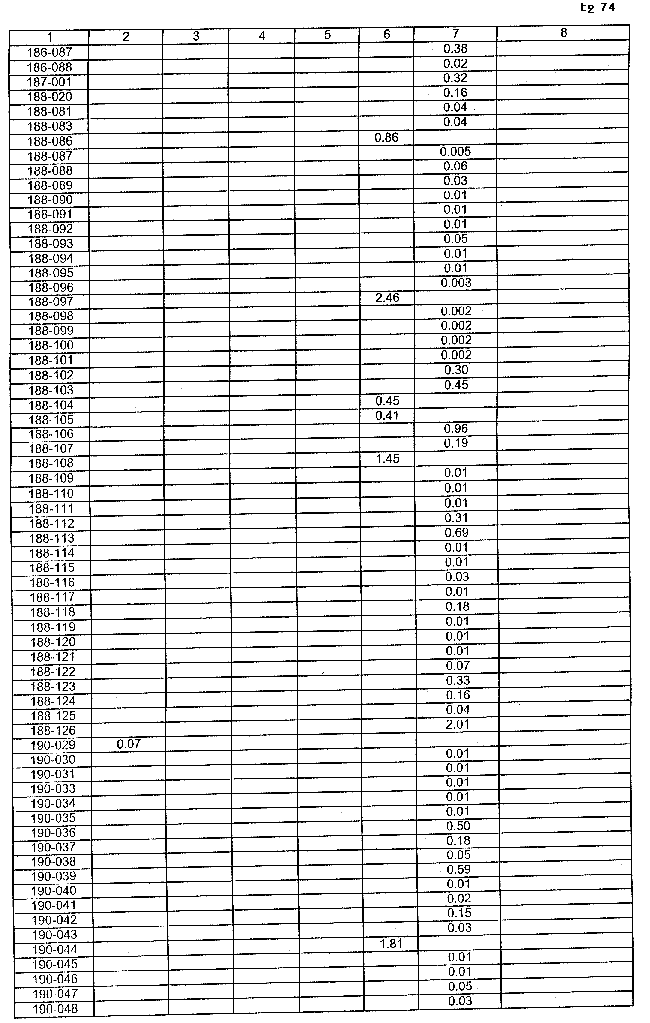 էջ 74
1 2 3 4 5 6 7 8
186-087 0.38
186-088 0.02
187-001 0.32
188-020 0.16
188-081 0.04
188-083 0.04
188-086 0.86
188-087 0.005
188-088 0.06
188-089 0.03
188-090 0.01
188-091 0.01
188-092 0.01
188-093 0.05
188-094 0.01
188-095 0.01
188-096 0.003
188-097 2.46
188-098 0.002
188-099 0.002
188-100 0.002
188-101 0.002
188-102 0.30
188-103 0.45
188-104 0.45
188-105 0.41
188-106 0.96
188-107 0.19
188-108 1.45
188-109 0.01
188-110 0.01
188-111 0.01
188-112 0.31
188-113 0.69
188-114 0.01
188-115 0.01
188-116 0.03
188-117 0.01
188-118 0.18
188-119 0.01
188-120 0.01
188-121 0.01
188-122 0.07
188-123 0.33
188-124 0.16
188-125 0.04
188-126 2.01
190-029 0.07
190-030 0.01
190-031 0.01
190-033 0.01
190-034 0.01
190-035 0.01
190-036 0.50
190-037 0.18
190-038 0.05
190-039 0.59
190-040 0.01
190-041 0.02
190-042 0.15
190-043 0.03
190-044 1.81
190-045 0.01
190-046 0.01
190-047 0.05
190-048 0.03